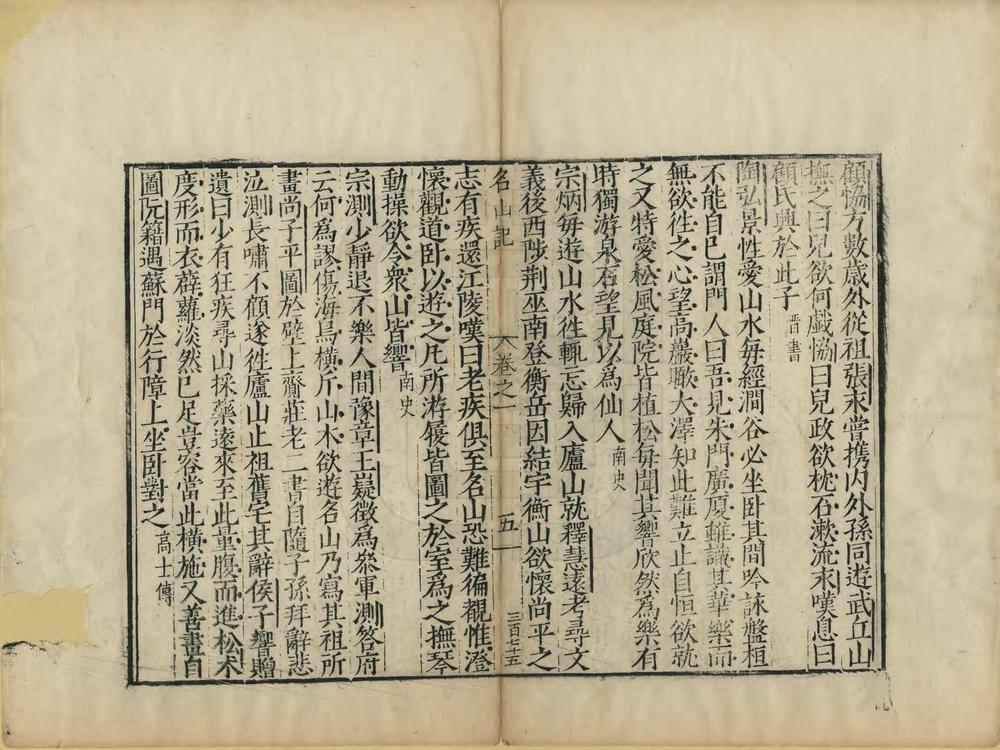 顧恊方數歳外從祖張永嘗携内外孫同遊武丘山
撫之曰兒欲何戲恊曰兒政欲枕石漱流永嘆息曰
顧氏興於此子晋書
陶弘景性愛山水每經澗谷必坐卧其間吟詠盤桓
不能自已謂門人曰吾見朱門廣厦雖識其華樂而
無欲徃之心望高巖瞰大澤知此難立止自恒欲就
之又特愛松風庭院皆植松每聞其響欣然爲樂有
時獨游泉石望見以為仙人南史
宗炳每遊山水徃輒忘歸入廬山就釋慧遠考尋文
義後西陟荆巫南登衡岳因結宇衡山欲懷尚平之
名山記 卷之一 五 三百七十五
志有疾還江陵嘆曰老疾俱至名山恐難徧覩惟澄
懷觀道卧以遊之凡所游履皆圖之於室爲之撫琴
動操欲令衆山皆響南史
宗測少靜退不樂人間豫章王嶷徵爲叅軍測答府
云何爲謬傷海鳥横斤山木欲遊名山乃寫其祖所
畫尚子平圖於壁上齎莊老二書自隨子孫拜辭悲
泣測長嘯不顧遂徃廬山止祖舊宅其辭侯子響贈
遺曰少有狂疾尋山採藥遠來至此量腹而進松术
度形而衣薜蘿淡然已足豈容當此横施又善畫自
圖阮籍遇蘇門於行障上坐卧對之高士傳